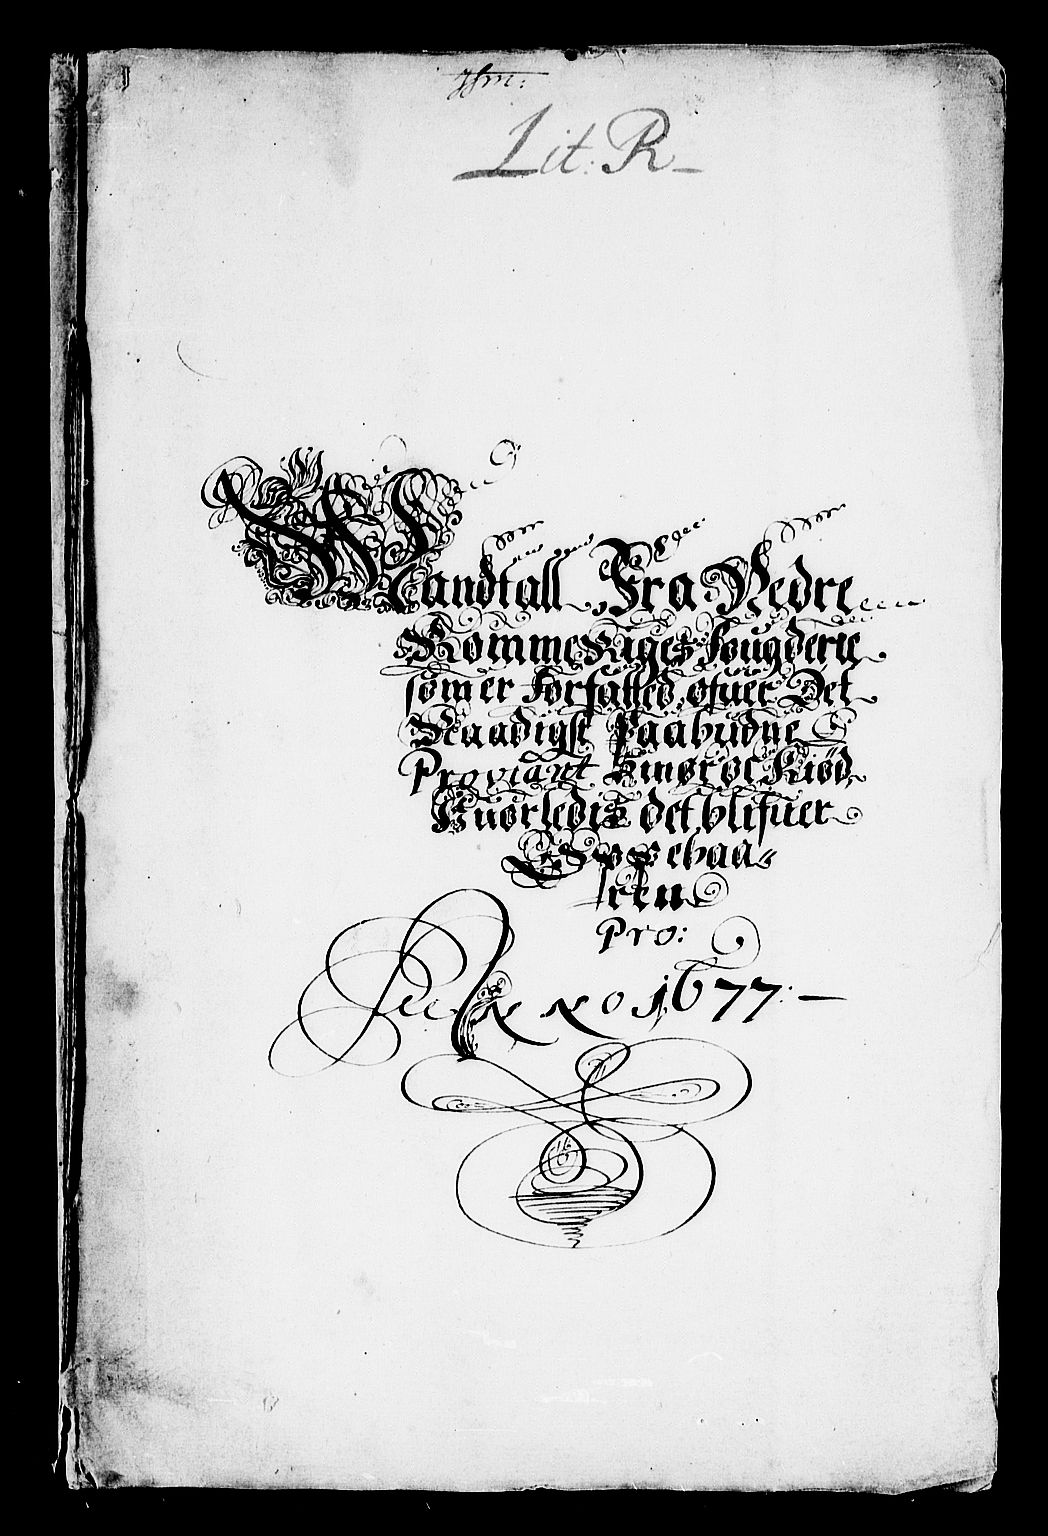 Lit: R
Mandtall Fra Nedre
RommeRiges fougderie
som er forfatted, ofuer Det
Naadigst Paabudne
Proviant Smør oc Kiød
Huorledis det blifuer
Oppebaa-
ren
Pro:
Anno 1677: